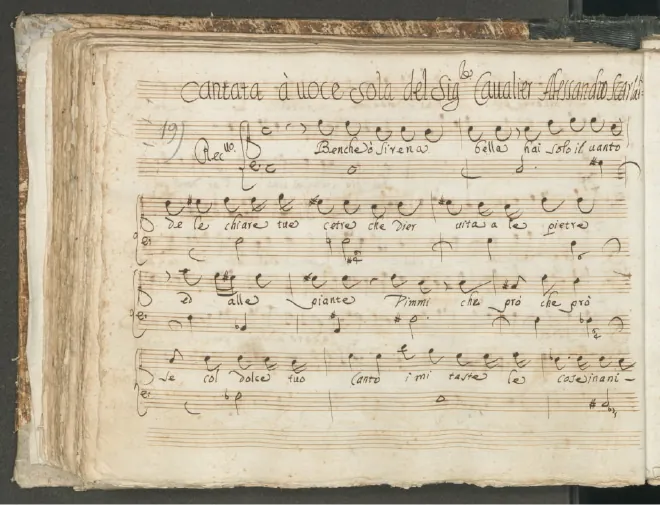 Cantata à voce sola del Sig.re Cavalier Alessandro Scarlatti
19)
Rec.vo
Benche ò Sirena bella hai solo il vanto
de le chiare tue cetre che dier vita a le pietre
ed alle piante Dimmi che prò che prò
se col dolce tuo Canto i mi taste le cose inani-